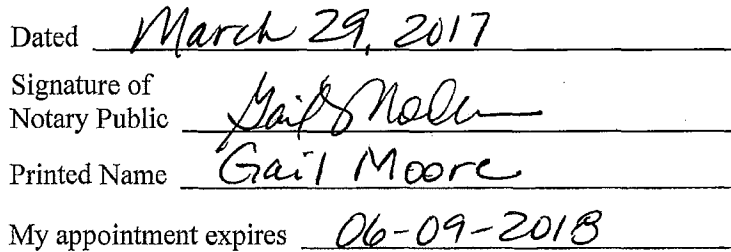 Dated March 29, 2017
Signature of
Notary Public
Printed Name Gail Moore
My appointment expires 06-09-2018